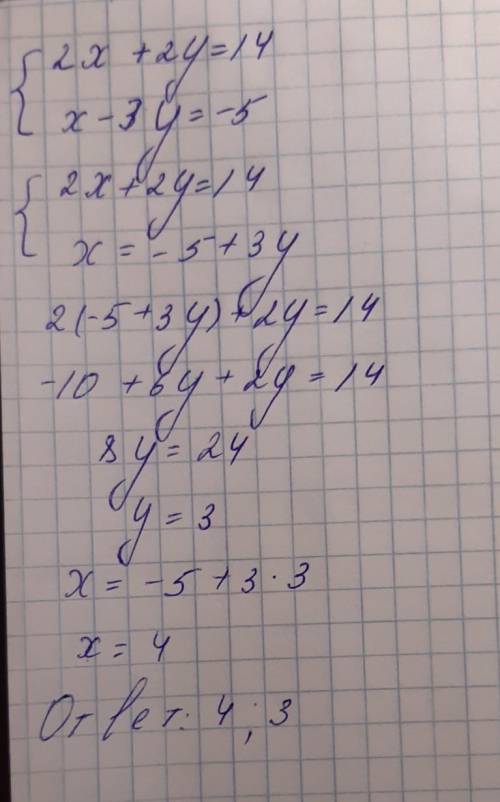 { 2x + 2y = 14
x - 3y = -5
{ 2x + 2y = 14
x = -5 + 3y
2(-5 + 3y) + 2y = 14
-10 + 6y + 2y = 14
8y = 24
y = 3
x = -5 + 3 · 3
x = 4
Ответ: 4 ; 3